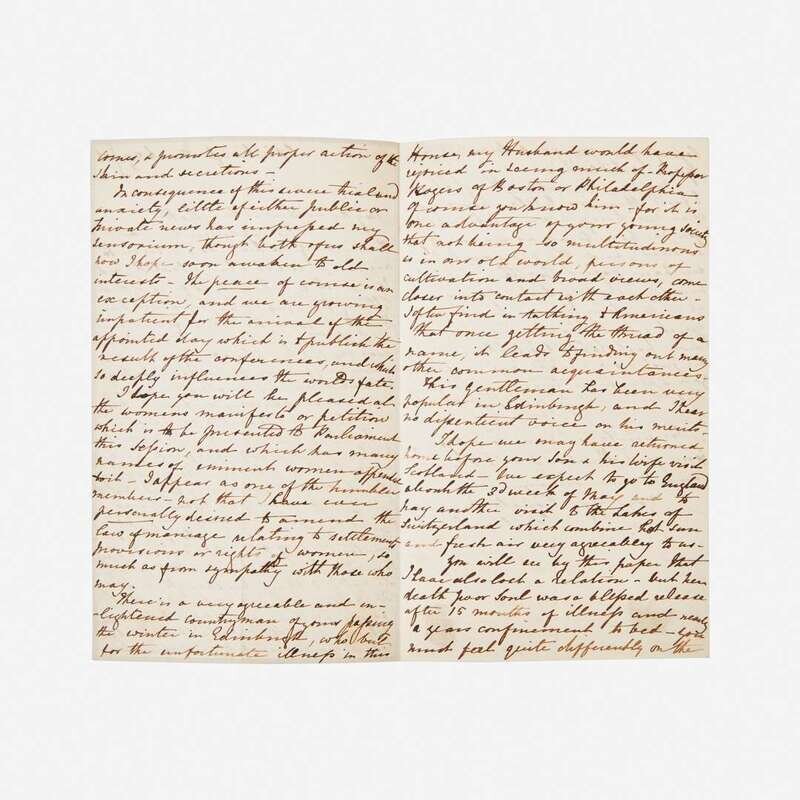 comes, & promotes all proper action of the
skin and secretions –
In consequence of this severe trial and
anxiety, little of either public or
private news has impressed my
sensorium, though both of us shall
now I hope soon awaken to old
interests – The peace of course is an
exception, and we are growing
impatient for the arrival of the
appointed day which is to publish the
result of the conferences, and which
so deeply influences the world's fate.
I hope you will be pleased at
the womens manifesto or petition
which is to be presented to Parliament
this Session, and which has many
names of eminent women appended
to it – I appear as one of the humbler
members – not that I have ever
personally desired to amend the
law of marriage relating to settlement
provisions or rights of women, so
much as from sympathy with those who
may.
There is a very agreeable and en-
-lightened countryman of yours passing
the winter in Edinburgh, who but
for the unfortunate illness in this
House, my Husband would have
rejoiced in seeing much of – Professor
Rogers of Boston or Philadelphia
of course you know him – for it is
one advantage of your young society
that not being so multitudinous
as in our old world, persons of
cultivation and broad views, come
closer into contact with each other –
I often find in talking to Americans
that once getting the thread of a
name, it leads to finding out many
other common acquaintances.
This gentleman has been very
popular in Edinburgh, and I hear
no dissentient voice on his merits –
I hope we may have returned
home before your Son & his wife visit
Scotland – We expect to go to England
about the 3d week of May and to
pay another visit to the Lakes of
Switzerland which combine hot sun
and fresh air very agreeably to us –
You will see by this paper that
I have also lost a relation – but her
death poor Soul was a blessed release
after 15 months of illness and nearly
a years confinement to bed – you
must feel quite differently on the